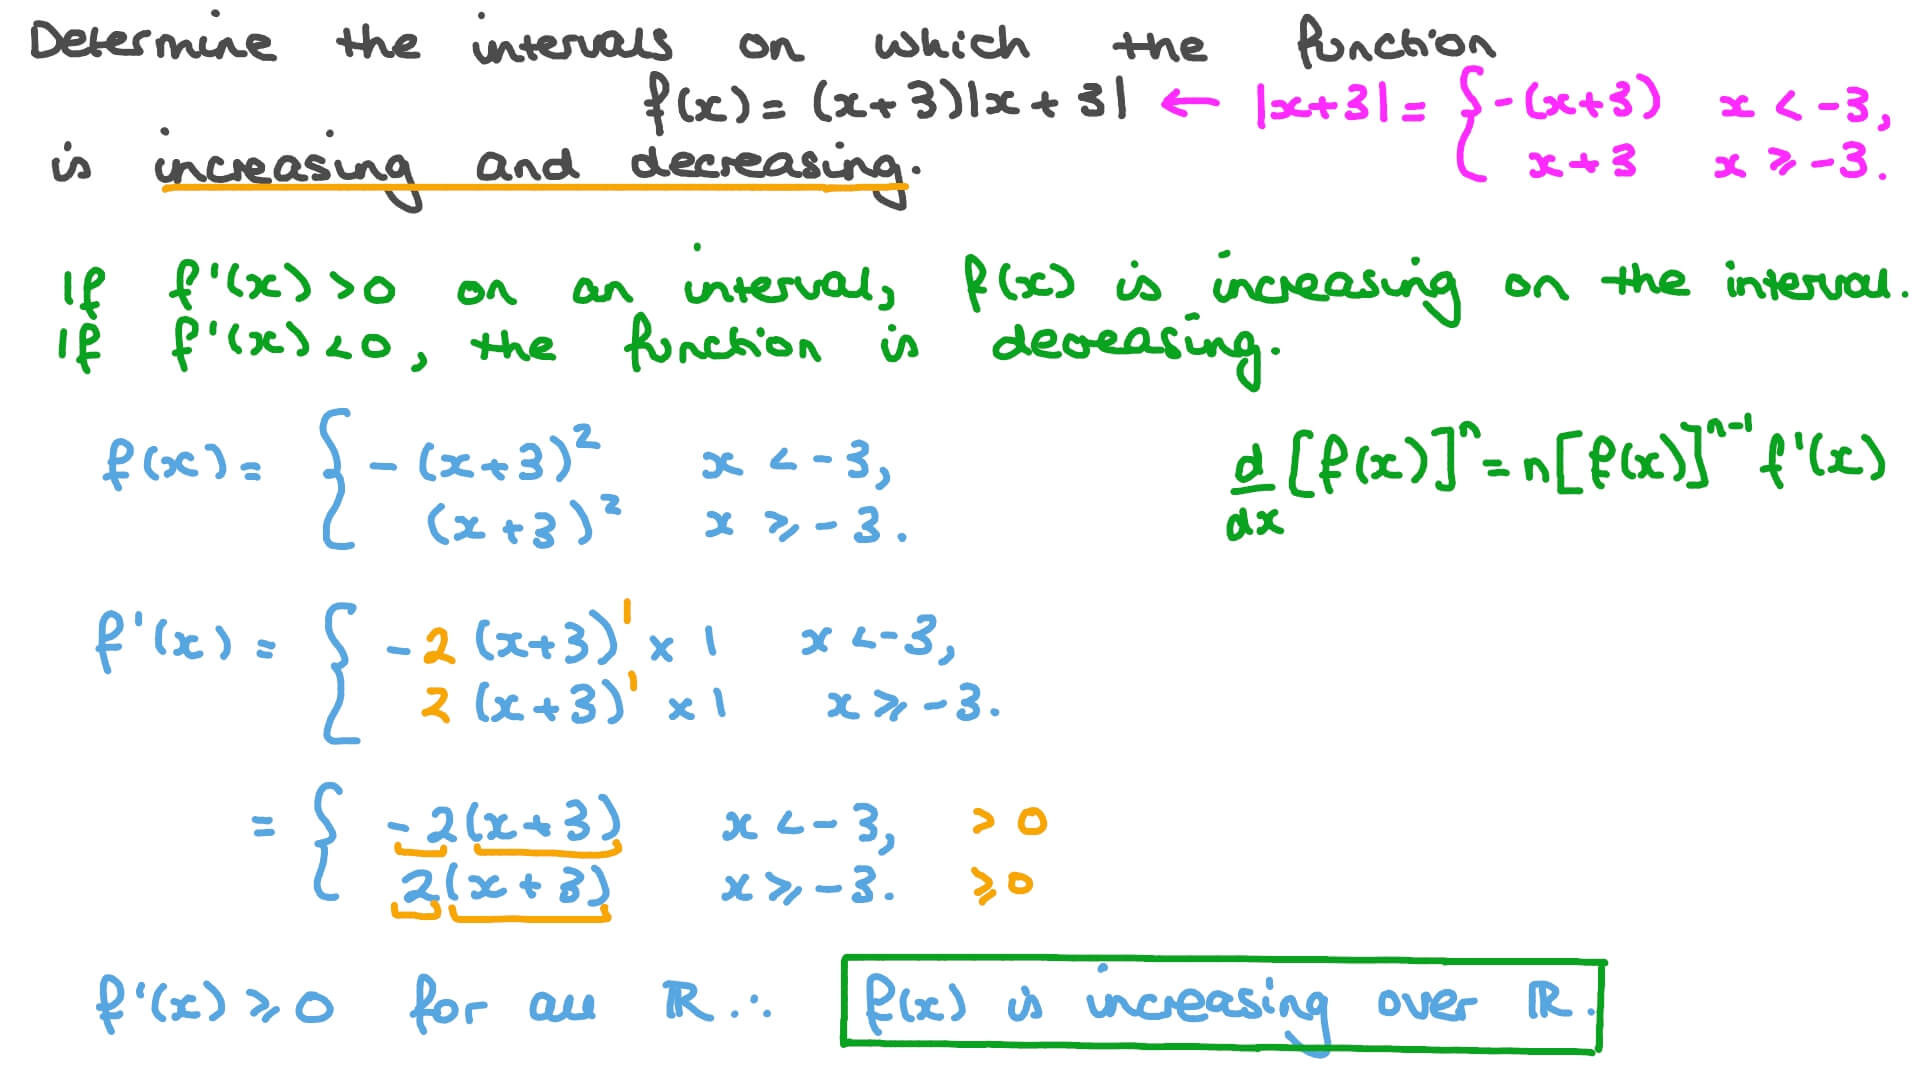 Determine the intervals on which the function
f(x) = (x+3)|x+3| ← |x+3| = { -(x+3) x < -3,
x+3 x ⩾ -3.
is increasing and decreasing.
If f'(x) > 0 on an interval, f(x) is increasing on the interval.
If f'(x) < 0, the function is decreasing.
f(x) = { -(x+3)² x < -3,
(x+3)² x ⩾ -3.
d/dx [f(x)]ⁿ = n[f(x)]ⁿ⁻¹ f'(x)
f'(x) = { -2(x+3)¹ × 1 x < -3,
2(x+3)¹ × 1 x ⩾ -3.
= { -2(x+3) x < -3, > 0
2(x+3) x ⩾ -3. ⩾ 0
f'(x) ⩾ 0 for all ℝ ∴ f(x) is increasing over ℝ.